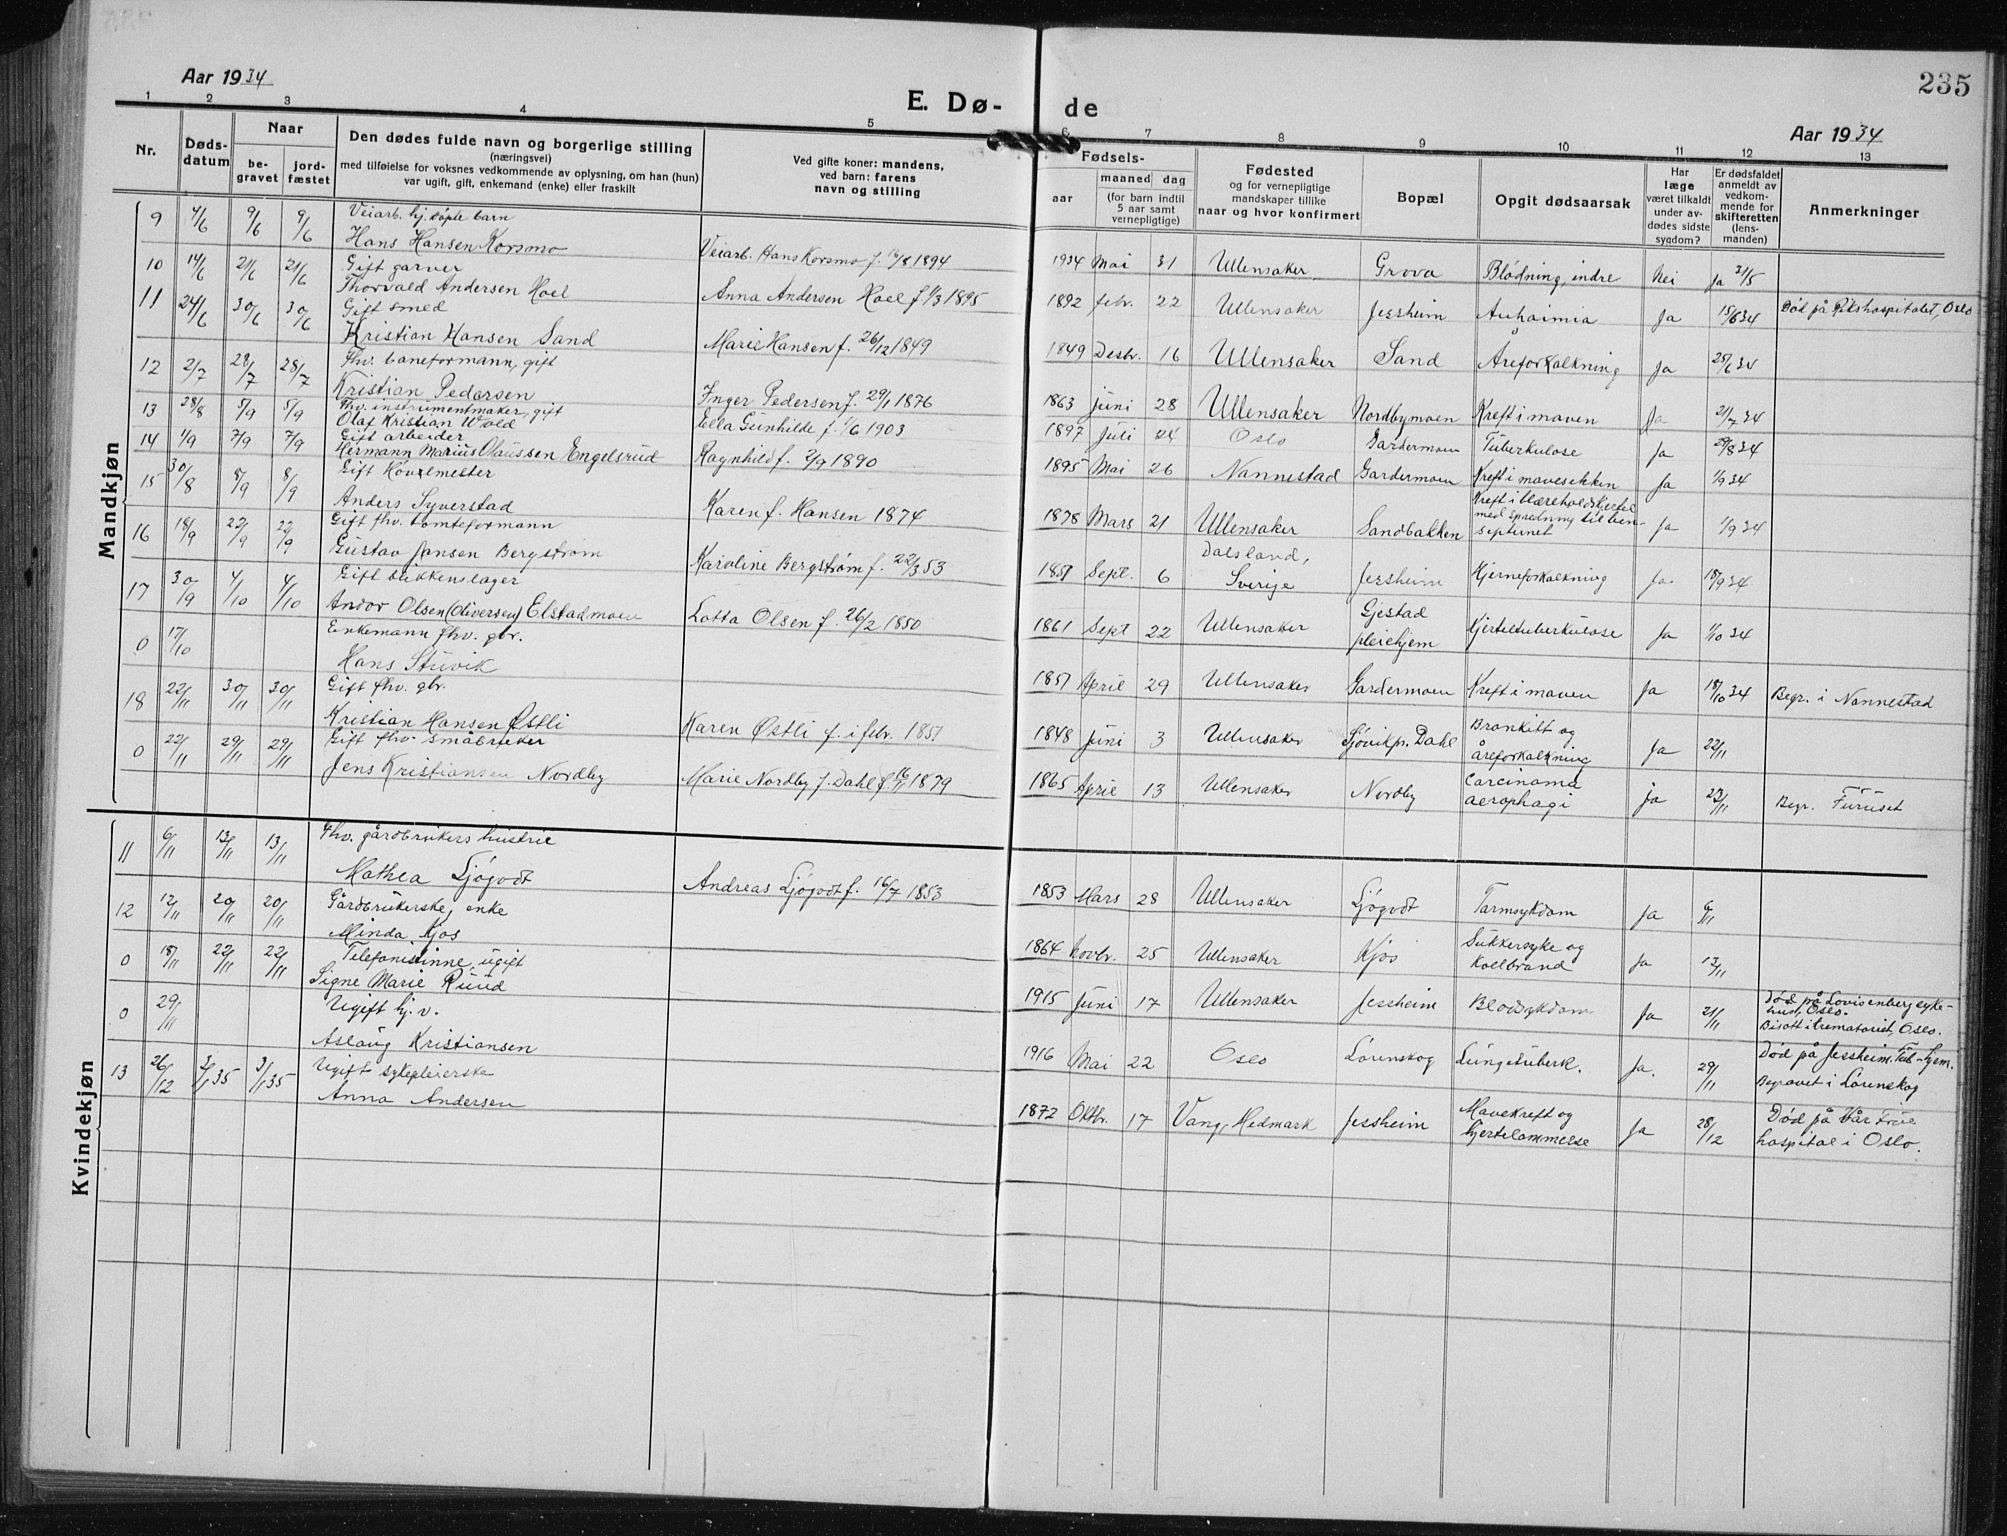 235
Aar 1934
E. Dø- de
Aar 1934
1 2 3 4 5 6 7 8 9 10 11 12 13
Nr.
Døds-
datum
Naar
be-
gravet
jord-
fæstet
Den dødes fulde navn og borgerlige stilling
(næringsvei)
med tilføielse for voksnes vedkommende av oplysning, om han (hun)
var ugift, gift, enkemand (enke) eller fraskilt
Ved gifte koner: mandens,
ved barn: farens
navn og stilling
Fødsels-
aar
maaned dag
(for barn indtil
5 aar samt
vernepligtige)
Fødested
og for vernepligtige
mandskaper tillike
naar og hvor konfirmert
Bopæl
Opgit dødsaarsak
Har
læge
været tilkaldt
under av-
dødes sidste
sygdom?
Er dødsfaldet
anmeldt av
vedkom-
mende for
skifteretten
(lens-
manden)
Anmerkninger
Mandkjøn
9 4/6 9/6 9/6 Veiarb. hj.døpte barn
Hans Hansen Korsmo Veiarb. Hans Korsmo f. 16/8 1894 1934 Mai 31 Ullensaker Grova Blødning, indre Nei Ja 31/5
10 14/6 21/6 21/6 Gift garver
Thorvald Andersen Hoel Anna Andersen Hoel f. 1/3 1895 1892 febr. 22 Ullensaker Jessheim Anhaimia Ja 15/6 34 Død på Rikshospitalet, Oslo
11 24/6 30/6 30/6 Gift smed
Kristian Hansen Sand Marie Hansen f. 26/12 1849 1849 Desbr. 16 Ullensaker Sand Åreforkalkning Ja 25/6 34
12 2/7 28/7 28/7 Fhv. baneformann, gift
Kristian Pedersen Inger Pedersen f. 29/1 1876 1863 Juni 28 Ullensaker Nordbymoen Kreft i maven Ja 21/7 34
13 28/8 5/9 5/9 Fhv. instrumentmaker, gift
Olaf Kristian Wold Ella Gunhilde f. 1/6 1903 1897 Juli 24 Oslo Gardermoen Tuberkulose Ja 29/8 34
14 1/9 7/9 7/9 Gift arbeider
Hermann Marius Olaussen Engelsrud Ragnhild f. 2/9 1890 1895 Mai 26 Nannestad Gardermoen Kreft i mavesekken Ja 1/9 34
15 30/8 8/9 8/9 Gift Hovslmester
Anders Syverstad Karen f. Hansen 1874 1878 Mars 21 Ullensaker Sandbakken Kreft i blæreholdskjertel
med spredning til ben-
septumet Ja 1/9 34
16 18/9 22/9 22/9 Gift fhv. tomteformann
Gustav Jansen Bergstrøm Karoline Bergstrøm f. 22/3 53 1851 Sept. 6 Dalsland,
Sverige Jessheim Hjerneforkalkning Ja 18/9 34
17 30/9 4/10 4/10 Gift blikkenslager
Andor Olsen (Oliversen) Elstadmoen Lotta Olsen f. 26/2 1850 1861 Sept 22 Ullensaker Gjestad
pleiehjem Kjerteltuberkulose Ja 1/10 34
0 17/10 Enkemann fhv. gbr.
Hans Stuvik 1851 April 29 Ullensaker Gardermoen Kreft i maven Ja 18/10 34 Begr. i Nannestad
18 22/11 30/11 30/11 Gift fhv. gbr.
Kristian Hansen Østli Karen Østli f. i febr. 1851 1848 Juni 3 Ullensaker Sjøvikpr. Dahl Bronkitt og
åreforkalkning Ja 22/11
0 22/11 29/11 29/11 Gift fhv. småbruker
Jens Kristiansen Nordby Marie Nordby f. Dahl f. 16/11 1879 1865 April 13 Ullensaker Nordby Carcinoma
aerophagi ja 23/11 Begr. Furuset
Kvindekjøn
11 6/11 13/11 13/11 Fhv. gårdbrukers hustrue
Mathea Ljøgodt Andreas Ljøgodt f. 16/7 1853 1853 Mars 28 Ullensaker Ljøgodt Tarmsykdom Ja 6/11
12 12/11 20/11 20/11 Gårdbrukerske, enke
Minda Kjos 1864 Novbr. 25 Ullensaker Kjos Sukkersyke og
koldbrand Ja 13/11
0 18/11 22/11 22/11 Telefonistinne, ugift
Signe Marie Ruud 1915 Juni 17 Ullensaker Jessheim Blodsykdom Ja 21/11 Død på Lovisenberg syke-
hus, Oslo.
Bisatt i krematoriet, Oslo.
0 29/11 Ugift hj.v.
Aslaug Kristiansen 1916 Mai 22 Oslo Lørenskog Lungetuberk. Ja. 29/11 Død på Jessheim Tub-hjem.
Begravet i Lørenskog
13 26/12 3/1 35 3/1 35 Ugift sykepleierske
Anna Andersen 1872 Oktbr. 17 Vang, Hedmark Jessheim Mavekreft og
hjertelammelse Ja 28/12 Død på Vår Frue
hospital i Oslo.